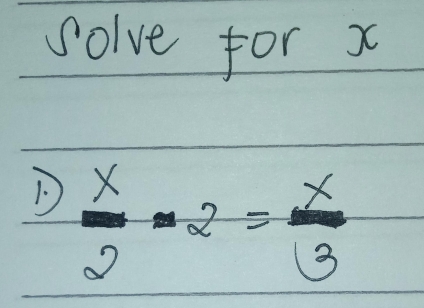 Solve for x
1.) x/2 - 2 = x/3